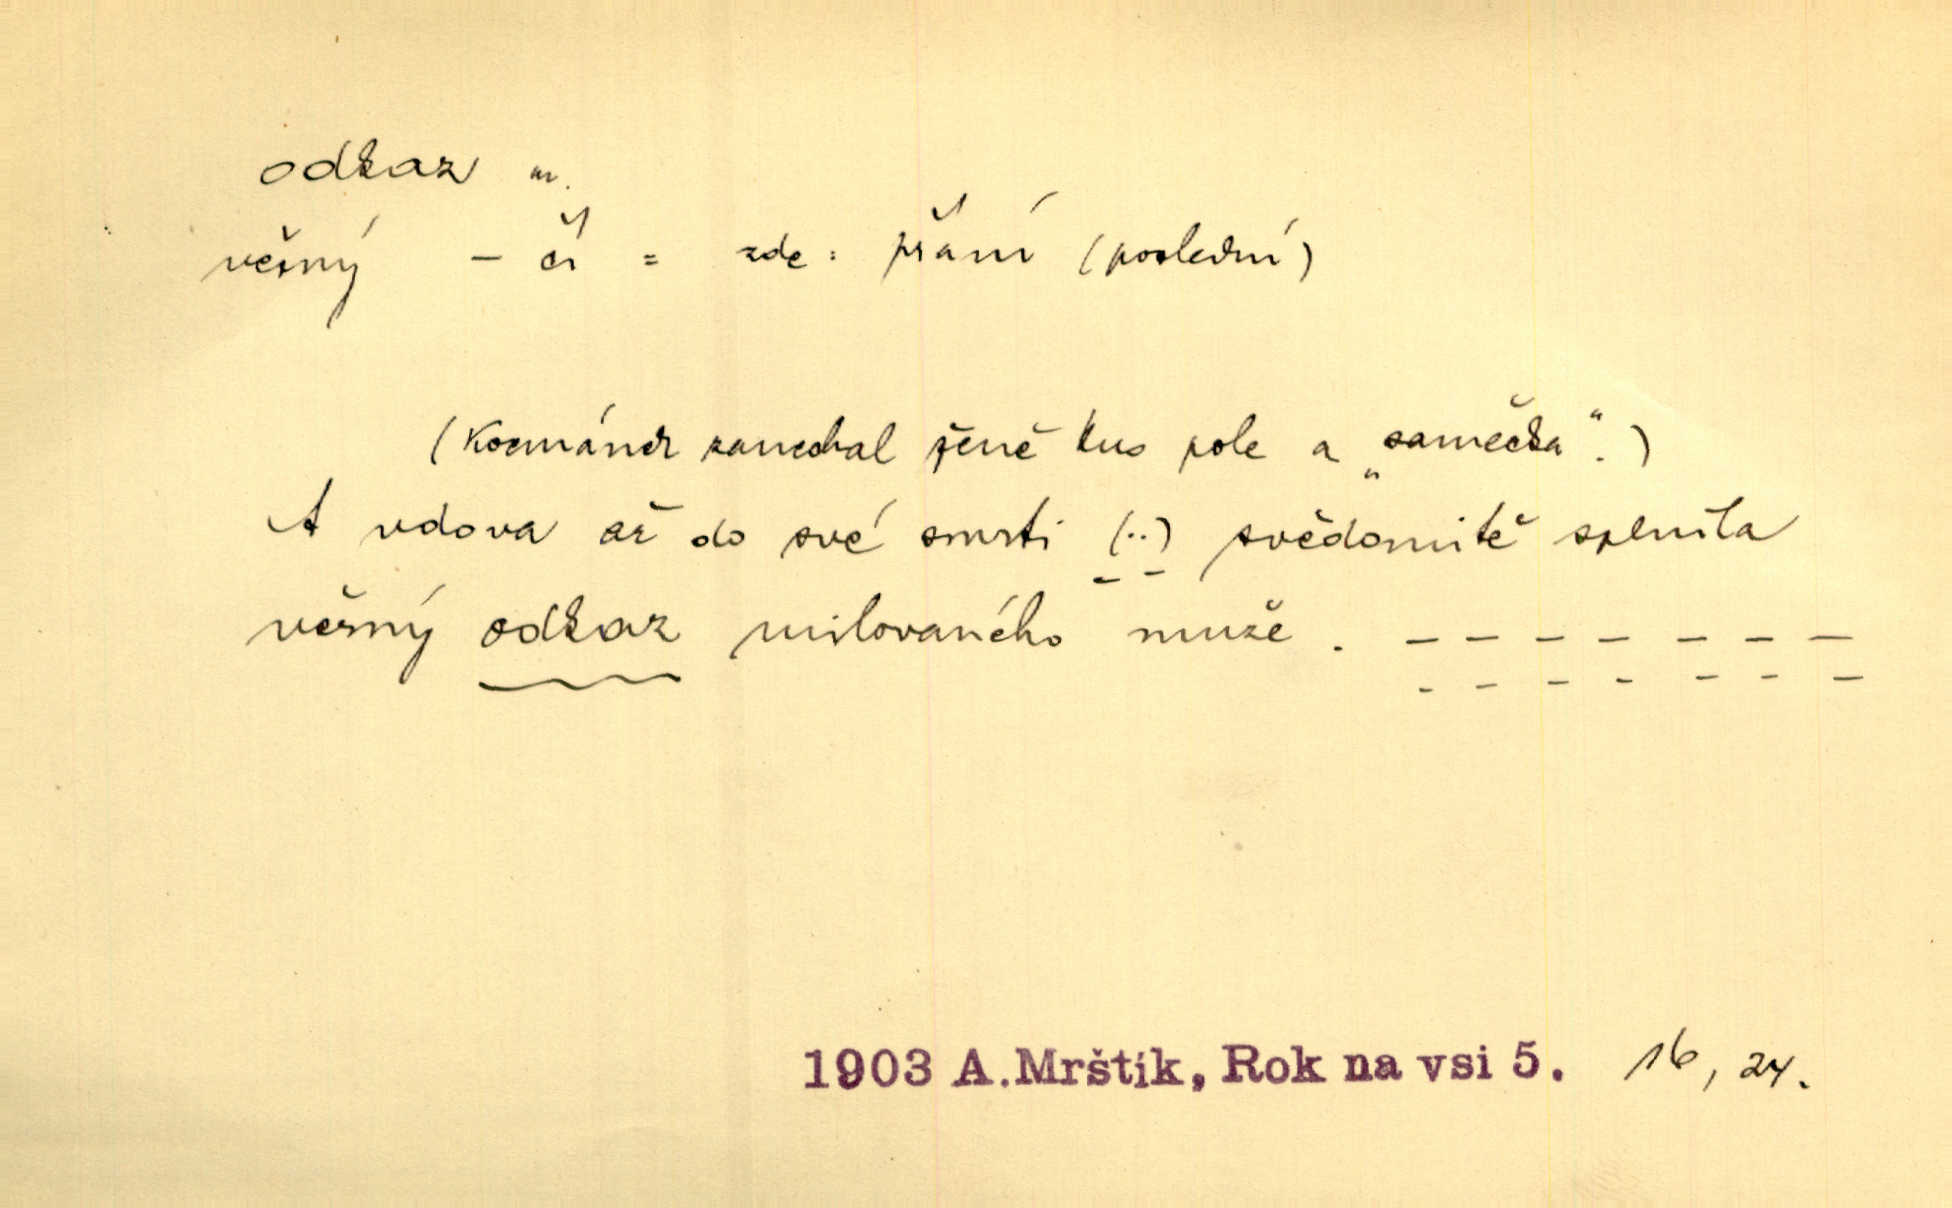 odkaz m.
věčný — čí = zde: přání (poslední)
(Kocmánek zanechal ženě kus pole a „samečka“.)
A vdova až do své smrti (..) svědomitě splnila
věčný odkaz milovaného muže. — — — — — — —
1903 A.Mrštík, Rok na vsi 5. 16, 24.